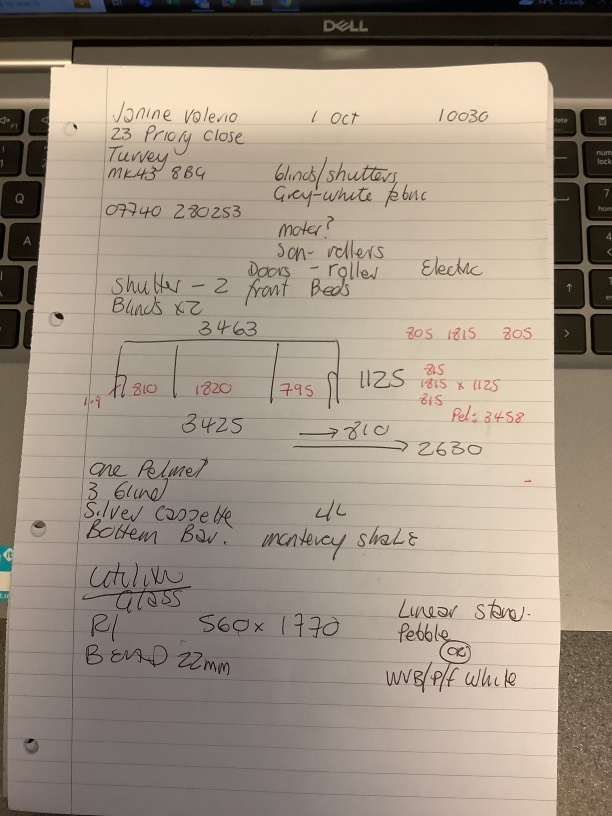 DELL
Janine Valerio 1 Oct 10030
23 Priory Close
Turvey
MK43 8BG blinds/shutters
Grey-white fabric
07740 280253
motor?
Son- rollers
Doors - roller Electric
Shutter - 2 front Beds
Blinds x2
3463
805 1815 805
810 1820 795 1125
815
1815 x 1125
815
Pel: 3458
3425 → 810
→ 2630
one Pelmet
3 Blind
Silver Cassette 4L
Bottom Bar. monterey shale
Utility
Glass
R/ 560 x 1770
BEAD 22mm
Linear Stone.
Pebble
OR
WVB/P/f White